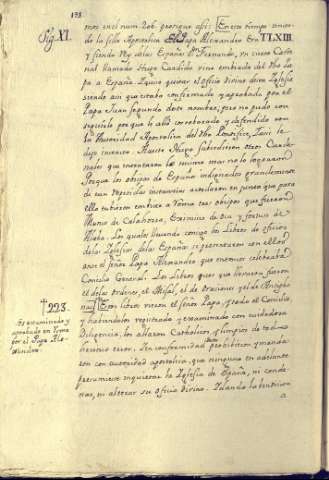 138
Sig. XI.
en el num. 206. prosigue assi: En este tiempo tenien-
do la silla Apostolica el Papa Alexandro
TT.XIII.
y siendo Rey de las Españas Dn. Fernando, un cierto Carde-
nal llamado Hugo Candido vino embiado del dho Pa-
pa a España. Quiso quitar el Oficio divino de la Iglesia
siendo assi que estaba confirmado y aprobado por el
Papa Juan segundo deste nombre; pero no pudo con
seguirlo por que lo allò corroborado y defendido con
la Autoridad Apostolica del dho Pontifice, i assi lo
dejo intacto. Hasta Hugo subsiguieron otros Carde-
nales que intentaron lo mismo mas no lo lograron
Porque los obispos de España indignados grandemente
de tan repetidas instancias acordaron en junta que para
ello tubieron embiar a Roma tres obispos que fueron
Munio de Calahorra, Eximino de Oca y Fortunio de
Alaba. Los quales llevando consigo los Libros de oficios
de las Iglesias de las Españas se presentaron con ellos
ante el Señor Papa Alexandro que entonces celebraba
Concilio General. Los Libros pues que llevaron fueron
el de las ordenes, el Missal, el de oraciones y el de Antipho-
nas. Estos libros vieron el Señor Papa, y todo el Concilio,
y habiendolos registrado y examinado con cuidadosa
Diligencia, los allaron Catholicos y limpios de toda
heretica
En conformidad prohibieron y manda-
ron con autoridad apostolica, que ninguno en adelante
presumiesse inquietar la Iglesia de España, ni conde-
nar, ni alterar su oficio divino. I dando la bendicion
a
† 223.
Es examinado y
aprobado en Roma
por el Papa Ale-
xandro.